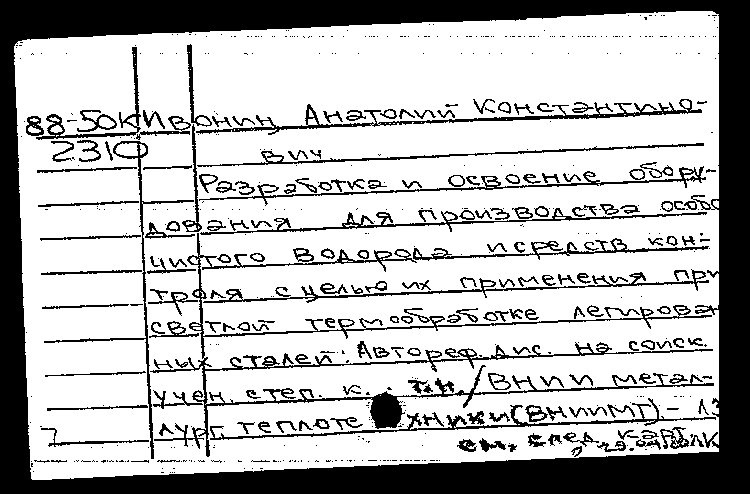 88-50К Ивонин, Анатолий Константино-
2310 вич.
Разработка и освоение обору-
дования для производства особо
чистого водорода и средств кон-
троля с целью их применения при
светлой термообработке легирован
ных сталей: Автореф. дис. на соиск.
учен. степ. к. т.н. / ВНИИ метал-
лург. теплотехники (ВНИИМТ). -
7
см. след. карт.